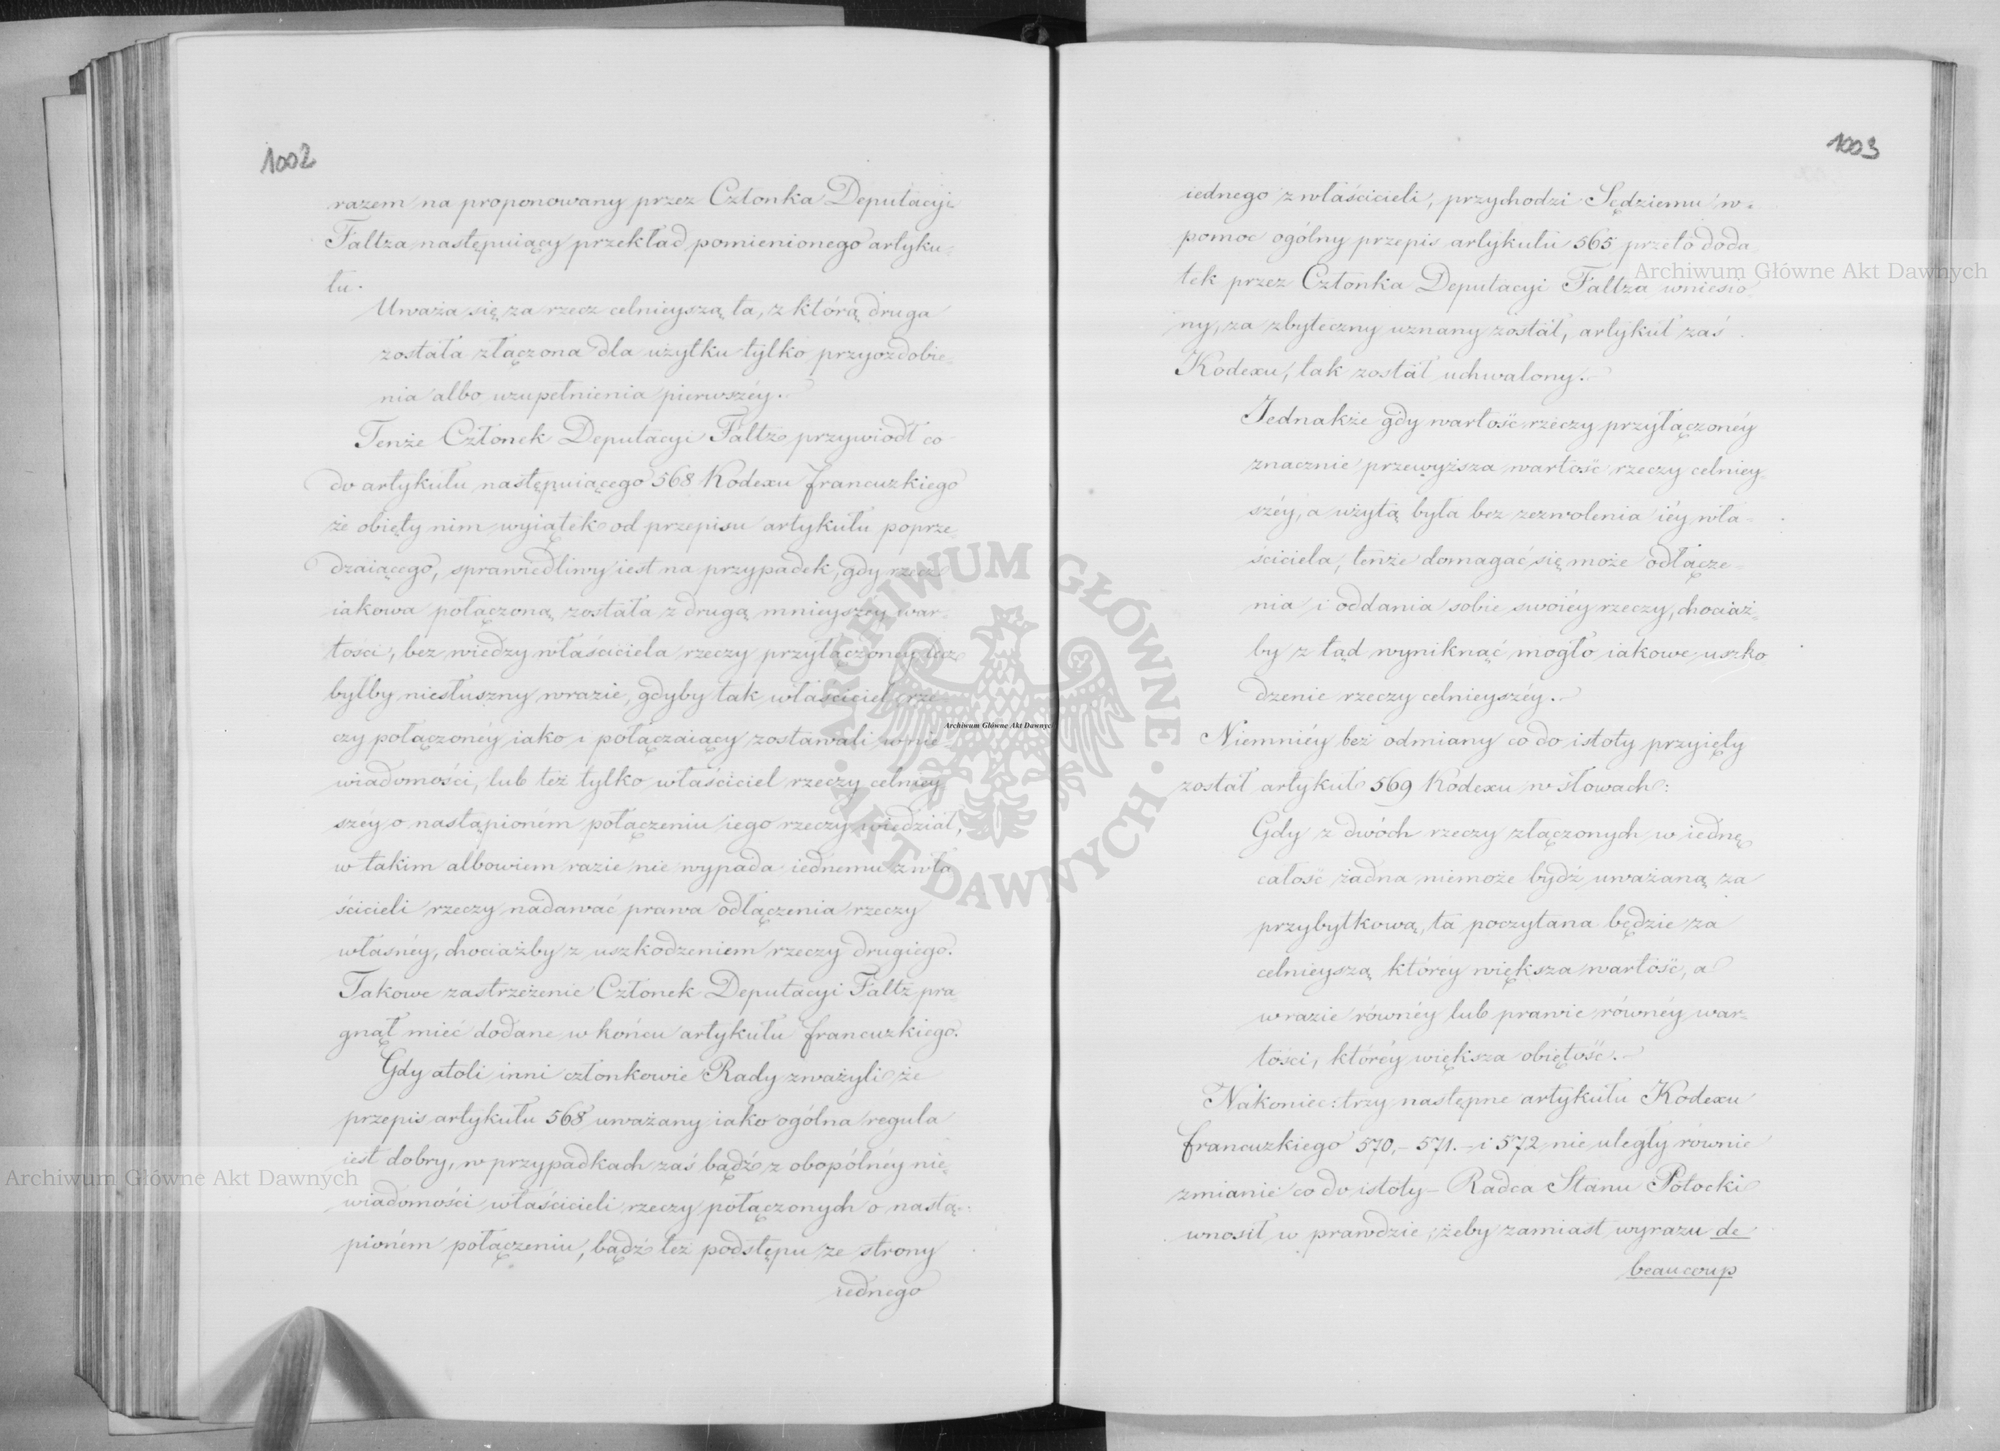 1002
razem na proponowany przez Członka Deputacyi
Faltza następuiący przekład pomienionego artyku-
łu.
Uważa się za rzecz celnieyszą ta, z którą druga
została złączona dla użytku tylko przyozdobie-
nia albo uzupełnienia pierwszéy.
Tenże Członek Deputacyi Faltz przywiodł co
do artykułu następuiącego 568 Kodexu francuzkiego
że obięty nim wyiątek od przepisu artykułu poprze-
dzaiącego, sprawiedliwy iest na przypadek, gdy rzecz
iakowa połączoną została z drugą mnieyszey war-
tości, bez wiedzy właściciela rzeczy przyłączoney lecz
byłby niesłuszny w razie, gdyby tak właściciel rze-
czy połączonéy iako i połączaiący zostawali w nie-
wiadomości, lub też tylko właściciel rzeczy celniey-
széy o nastąpioném połączeniu iego rzeczy wiedział,
w takim albowiem razie nie wypada iednemu z wła
ścicieli rzeczy nadawać prawa odłączenia rzeczy
własnéy, chociażby z uszkodzeniem rzeczy drugiego.
Takowe zastrzeżenie Członek Deputacyi Faltz pra-
gnął mieć dodane w końcu artykułu francuzkiego.
Gdy atoli inni członkowie Rady zważyli że
przepis artykułu 568 uważany iako ogólna reguła
iest dobry, w przypadkach zaś bądź z obopólnéy nie-
wiadomości właścicieli rzeczy połączonych o nastą-
pioném połączeniu, bądź też podstępu ze strony
iednego
1003
iednego z właścicieli, przychodzi Sędziemu w
pomoc ogólny przepis artykułu 565 przeto doda-
tek przez Członka Deputacyi Faltza wniesio-
ny, za zbyteczny uznany został, artykuł zaś
Kodexu, tak został uchwalony.
Jednakże gdy wartość rzeczy przyłączonéy
znacznie przewyższa wartość rzeczy celniey-
széy, a użytą była bez zezwolenia iéy wła-
ściciela, tenże domagać się może odłącze-
nia i oddania sobie swoiéy rzeczy, chociaż-
by z tąd wyniknąć mogło iakowe uszko
dzenie rzeczy celnieyszéy.
Niemniéy bez odmiany co do istoty przyięty
został artykuł 569 Kodexu w słowach:
Gdy z dwóch rzeczy złączonych w iednę
całość żadna niemoże bydź uważaną za
przybytkową, ta poczytana będzie za
celnieyszą któréy większa wartość, a
w razie równéy lub prawie równéy war-
tości, któréy większa obiętość.
Nakoniec: trzy następne artykułu Kodexu
francuzkiego 570,- 571.- i 572 nie uległy równie
zmianie co do istoty - Radca Stanu Potocki
wnosił w prawdzie, żeby zamiast wyrazu de
beaucoup
Archiwum Główne Akt Dawnych
Archiwum Główne Akt Dawnych
Archiwum Główne Akt Dawnyc
ARCHIWUM GŁÓWNE · AKT DAWNYCH ·